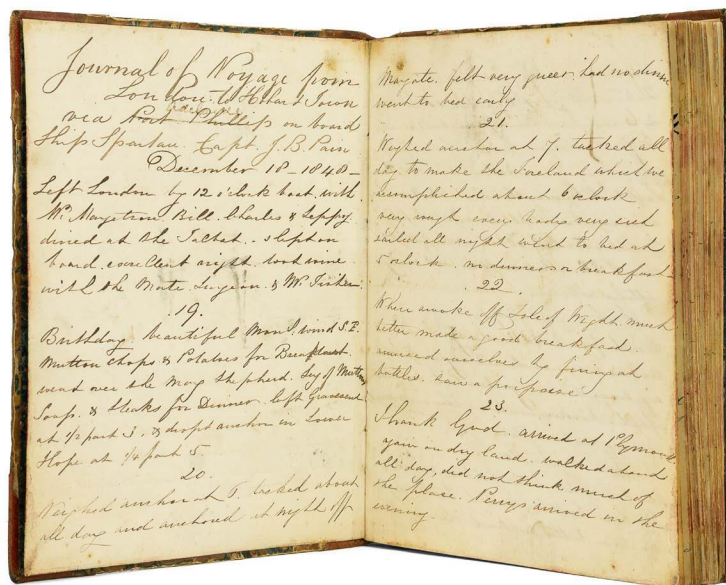 Journal of Voyage from
London to Hobart Town
via Port Phillip on board
Ship Spartan Capt. J. B. Pain
December 18 - 1848 -
Left London by 12 o'clock boat with
Wm Bill Charles &
dined at the slept on
board excellent night took wine
with the Mate Surgeon & Mr Fisher
19.
Birthday beautiful wind S.E.
Mutton Chops & Potatoes for Breakfast
went over the Mary Shepherd. Leg of Mutton
Soup & Steaks for Dinner left Gravesend
at 1/2 past 3, & dropd anchor in Lower
Hope at 1/4 past 5.
20.
Weighed anchor at 8. tacked about
all day and anchored at night off
Margate. felt very queer had no dinner
went to bed early
21.
Weyhed anchor at 7. tacked all
day to make the Foreland which we
accomplished about 6 oclock
very rough every body very sick
sailed all night went to bed at
5 oclock. no dinner or breakfast
22.
When awoke off Isle of Wight. much
better made a good breakfast
amused ourselves by firing at
bottles. saw a porpoise
23.
Thank God. arrived at Plymouth
again on dry land. walked about
all day, did not think much of
the place. Perrys arrived in the
evening.